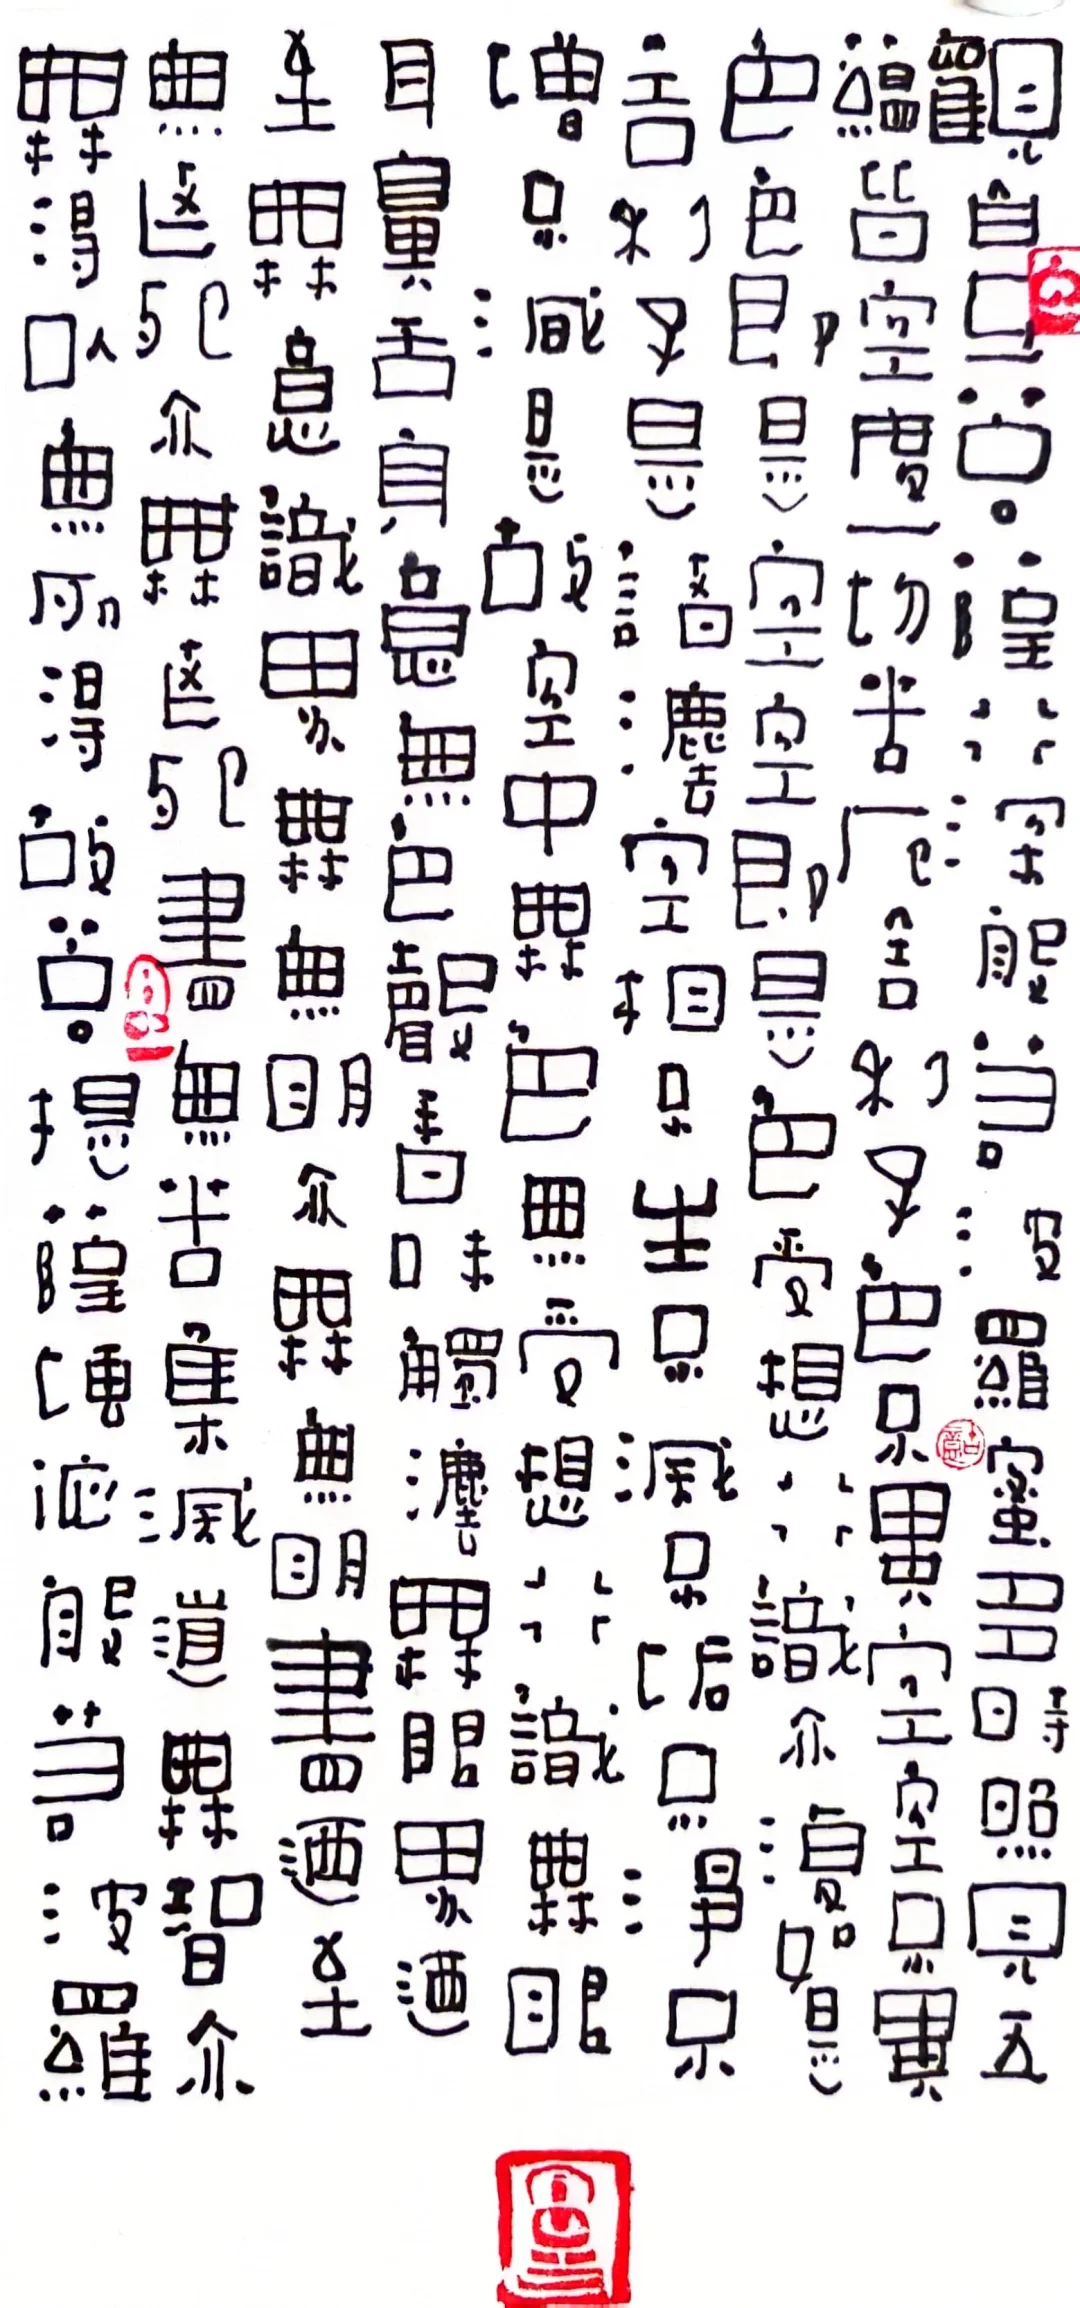 觀自在菩薩行深般若波羅蜜多時照見五
蘊皆空度一切苦厄舍利子色不異空空不異
色色即是空空即是色受想行識亦復如是
舍利子是諸灋空相不生不滅不垢不淨不
增不減是故空中無色無受想行識無眼
耳鼻舌身意無色聲香味觸灋無眼界迺
至無意識界無無明亦無無明盡迺至
無老死亦無老死盡無苦集滅道無智亦
無得以無所得故菩提薩埵依般若波羅